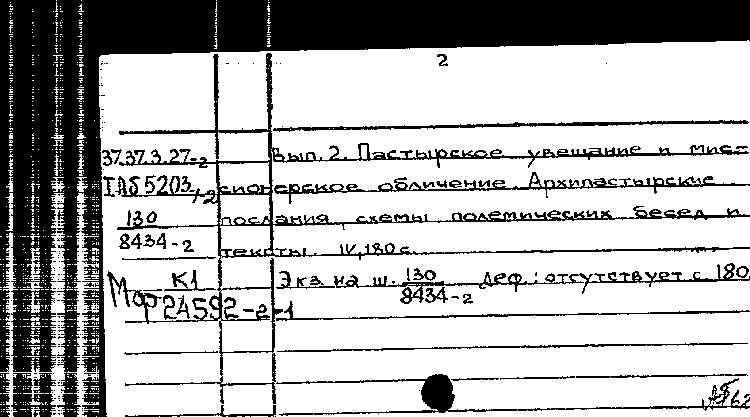 2
37.37.3.27-2 Вып. 2. Пастырское увещание и мис-
ТАБ 5203/-2 сионерское обличение Архипастырские
130 послания, схемы полемических бесед и
8434-2 тексты. IV, 180 с.
К1 Экз. на ш. 130 деф.: отсутствует с. 180
8434-2
24592-2-1